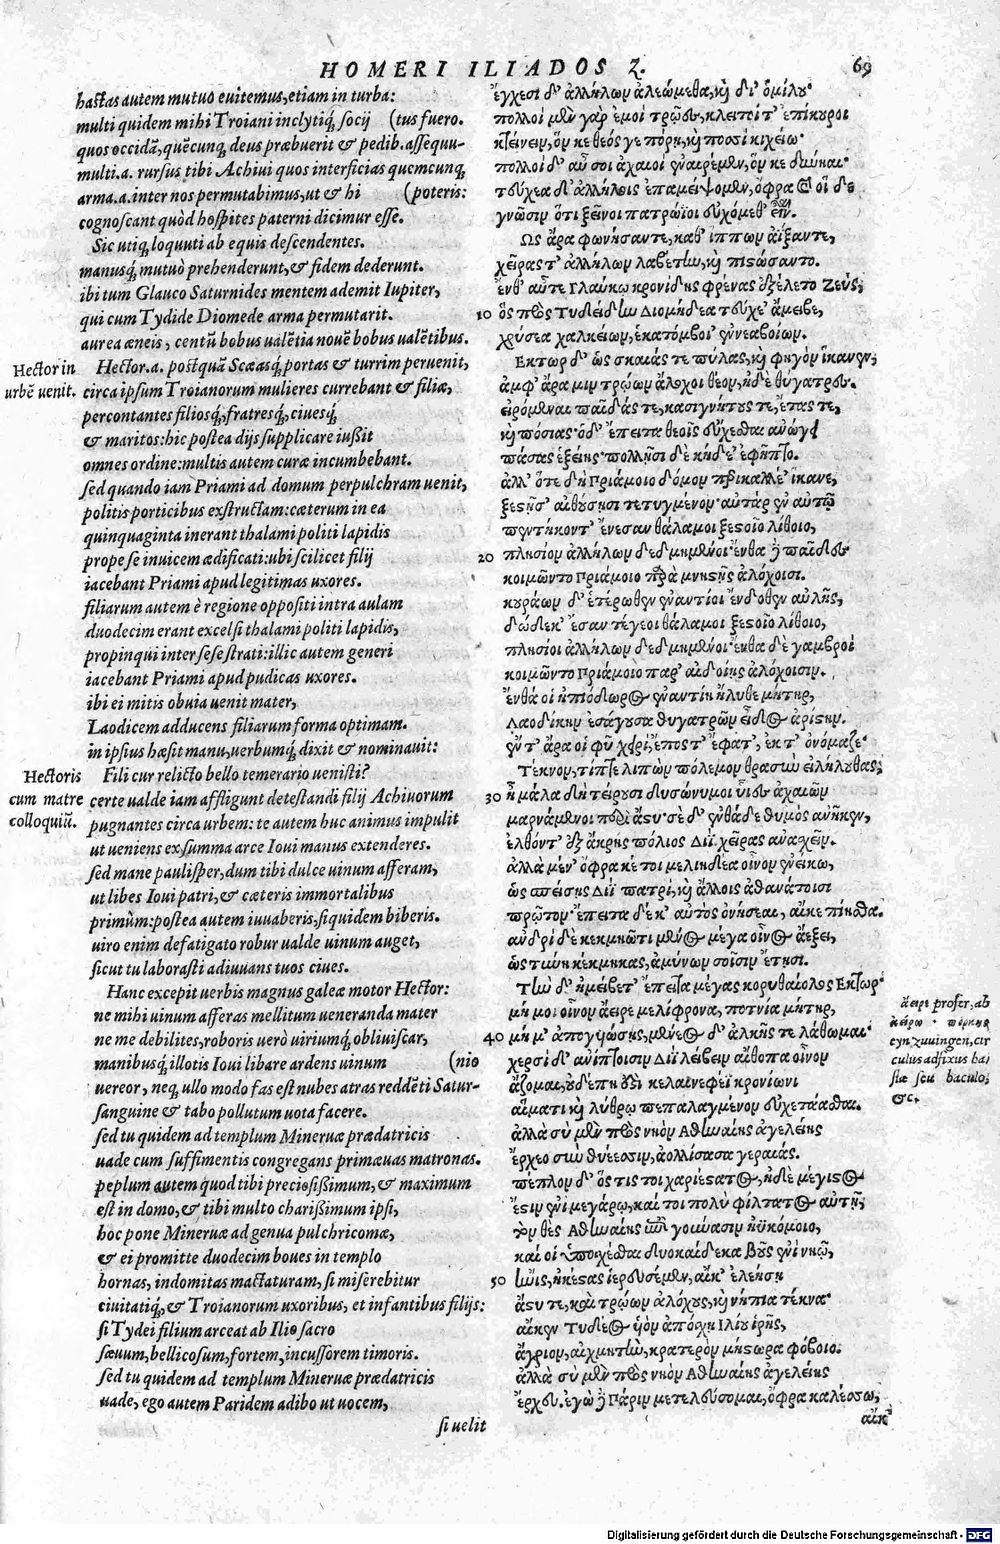 HOMERI ILIADOS Z.
69
hastas autem mutuo euitemus, etiam in turba:
multi quidem mihi Troiani inclytiq́; socij (tus fuero.
quos occidã, quẽcunq; deus præbuerit & pedib. assequu-
multi.a. rursus tibi Achiui quos interficias quemcunq;
arma.a. inter nos permutabimus, ut & hi (poteris:
cognoscant quòd hospites paterni dicimur esse.
Sic utiq; loquuti ab equis descendentes.
manusq́; mutuò prehenderunt, & fidem dederunt.
ibi tum Glauco Saturnides mentem ademit Iupiter,
qui cum Tydide Diomede arma permutarit.
aurea æneis, centũ bobus ualẽtia nouẽ bobus ualẽtibus.
Hector in
urbẽ uenit.
Hector.a. postquã Scæasq́; portas & turrim peruenit,
circa ipsum Troianorum mulieres currebant & filiæ,
percontantes filiosq́;, fratresq́;, ciuesq́;
& maritos: hic postea dijs supplicare iußit
omnes ordine: multis autem curæ incumbebant.
sed quando iam Priami ad domum perpulchram uenit,
politis porticibus exstructam: cæterum in ea
quinquaginta inerant thalami politi lapidis
prope se inuicem ædificati: ubi scilicet filij
iacebant Priami apud legitimas uxores.
filiarum autem è regione oppositi intra aulam
duodecim erant excelsi thalami politi lapidis,
propinqui inter sese strati: illic autem generi
iacebant Priami apud pudicas uxores.
ibi ei mitis obuia uenit mater,
Laodicem adducens filiarum forma optimam.
in ipsius hæsit manu, uerbumq́; dixit & nominauit:
Hectoris
cum matre
colloquiũ.
Fili cur relicto bello temerario uenisti?
certe ualde iam affligunt detestandi filij Achiuorum
pugnantes circa urbem: te autem huc animus impulit
ut ueniens ex summa arce Ioui manus extenderes.
sed mane paulisper, dum tibi dulce uinum afferam,
ut libes Ioui patri, & cæteris immortalibus
primùm: postea autem iuuaberis, siquidem biberis.
uiro enim defatigato robur ualde uinum auget,
sicut tu laborasti adiuuans tuos ciues.
Hanc excepit uerbis magnus galeæ motor Hector:
ne mihi uinum afferas mellitum ueneranda mater
ne me debilites, roboris uerò uiriumq́; obliuiscar,
manibusq́; illotis Ioui libare ardens uinum (nio
uereor, neq; ullo modo fas est nubes atras reddẽti Satur-
sanguine & tabo pollutum uota facere.
sed tu quidem ad templum Mineruæ prædatricis
uade cum suffimentis congregans primæuas matronas.
peplum autem quod tibi preciosißimum, & maximum
est in domo, & tibi multo charißimum ipsi,
hoc pone Mineruæ ad genua pulchricomæ,
& ei promitte duodecim boues in templo
hornas, indomitas mactaturam, si miserebitur
ciuitatiq́;, & Troianorum uxoribus, et infantibus filijs:
si Tydei filium arceat ab Ilio sacro
sæuum, bellicosum, fortem, incussorem timoris.
sed tu quidem ad templum Mineruæ prædatricis
uade, ego autem Paridem adibo ut uocem,
si uelit
ἔγχεσι δ' ἀλλήλων ἀλεώμεθα, καὶ δι' ὁμίλου·
πολλοὶ μὲν γὰρ ἐμοὶ τρῶες, κλειτοί τ' ἐπίκουροι
κτείνειν, ὅν κε θεός γε πόρῃ, καὶ ποσσὶ κιχείω·
πολλοὶ δ' αὖ σοὶ ἀχαιοὶ ἐναιρέμεν, ὅν κε δύνηαι·
τεύχεα δ' ἀλλήλοις ἐπαμείψομεν, ὄφρα καὶ οἵ δε
γνῶσιν ὅτι ξεῖνοι πατρώϊοι εὐχόμεθ' εἶναι.
Ως ἄρα φωνήσαντε, καθ' ἵππων ἀΐξαντε,
χεῖράς τ' ἀλλήλων λαβέτην, καὶ πιστώσαντο.
ἔνθ' αὖτε Γλαύκῳ κρονίδης φρένας ἐξέλετο Ζεύς,
10 ὃς πρὸς Τυδείδην Διομήδεα τεύχε' ἄμειβε,
χρύσεα χαλκείων, ἑκατόμβοι' ἐννεαβοίων.
Εκτωρ δ' ὡς σκαιάς τε πύλας, καὶ φηγὸν ἵκανεν,
ἀμφ' ἄρα μιν τρώων ἄλοχοι θέον, ἠδὲ θύγατρες.
εἰρόμεναι παῖδάς τε, κασιγνήτους τε, ἔτας τε,
καὶ πόσιας· ὁ δ' ἔπειτα θεοῖς εὔχεσθαι ἀνώγει
πάσας ἑξείης· πολλῇσι δὲ κήδε' ἐφῆπτο.
ἀλλ' ὅτε δὴ Πριάμοιο δόμον περικαλλέ' ἵκανε,
ξεστῇς αἰθούσῃσι τετυγμένον· αὐτὰρ ἐν αὐτῷ
πεντήκοντ' ἔνεσαν θάλαμοι ξεστοῖο λίθοιο,
20 πλησίον ἀλλήλων δεδμημένοι· ἔνθα δὲ παῖδες
κοιμῶντο Πριάμοιο παρὰ μνηστῇς ἀλόχοισι.
κουράων δ' ἑτέρωθεν ἐναντίοι ἔνδοθεν αὐλῆς,
δώδεκ' ἔσαν τέγεοι θάλαμοι ξεστοῖο λίθοιο,
πλησίοι ἀλλήλων δεδμημένοι· ἔνθα δὲ γαμβροὶ
κοιμῶντο Πριάμοιο παρ' αἰδοίῃς ἀλόχοισιν.
ἔνθά οἱ ἠπιόδωρος ἐναντίη ἤλυθε μήτηρ,
Λαοδίκην ἐσάγουσα θυγατρῶν εἶδος ἀρίστην.
ἔν τ' ἄρα οἱ φῦ χειρί, ἔπος τ' ἔφατ', ἔκ τ' ὀνόμαζε·
Τέκνον, τίπτε λιπὼν πόλεμον θρασὺν εἰλήλουθας;
30 ἦ μάλα δὴ τείρουσι δυσώνυμοι υἷες ἀχαιῶν
μαρνάμενοι περὶ ἄστυ· σὲ δ' ἐνθάδε θυμὸς ἀνῆκεν,
ἐλθόντ' ἐξ ἄκρης πόλιος Διῒ χεῖρας ἀνασχεῖν.
ἀλλὰ μέν' ὄφρα κέ τοι μελιηδέα οἶνον ἐνείκω,
ὡς σπείσῃς Διῒ πατρί, καὶ ἄλλοις ἀθανάτοισι
πρῶτον· ἔπειτα δέ κ' αὐτὸς ὀνήσεαι, αἴκε πίῃσθα.
ἀνδρὶ δὲ κεκμηῶτι μένος μέγα οἶνος ἀέξει,
ὡς τύνη κέκμηκας, ἀμύνων σοῖσιν ἔτῃσι.
Τὴν δ' ἠμείβετ' ἔπειτα μέγας κορυθαίολος Εκτωρ·
μή μοι οἶνον ἄειρε μελίφρονα, πότνια μῆτηρ,
40 μή μ' ἀπογυιώσῃς, μένεος δ' ἀλκῆς τε λάθωμαι·
χερσὶ δ' ἀνίπτοισιν Διῒ λείβειν αἴθοπα οἶνον
ἅζομαι, οὐδέ πη ἐστὶ κελαινεφέϊ κρονίωνι
αἵματι καὶ λύθρῳ πεπαλαγμένον εὐχετάασθαι.
ἀλλὰ σὺ μὲν πρὸς νηὸν Αθηναίης ἀγελείης
ἔρχεο σὺν θυέεσσιν, ἀολλίσασα γεραιάς.
πέπλον δ' ὅς τίς τοι χαριέστατος, ἠδὲ μέγιστος
ἔστιν ἐνὶ μεγάρῳ, καί τοι πολὺ φίλτατος αὐτῇ,
τὸν θὲς Αθηναίης ἐπὶ γούνασιν ἠϋκόμοιο,
καί οἱ ὑποσχέσθαι δυοκαίδεκα βοῦς ἐνὶ νηῷ,
50 ἤνις, ἠκέστας ἱερευσέμεν, αἴκ' ἐλεήσῃ
ἄστυ τε, καὶ τρώων ἀλόχους, καὶ νήπια τέκνα·
αἴκεν Τυδέος υἱὸν ἀπόσχῃ Ιλίου ἱρῆς,
ἄγριον, αἰχμητὴν, κρατερὸν μήστωρα φόβοιο.
ἀλλὰ σὺ μὲν πρὸς νηὸν Αθηναίης ἀγελείης
ἔρχευ. ἐγὼ δὲ Πάριν μετελεύσομαι, ὄφρα καλέσσω,
αἴκ'
ἄειρε profer, ab
ἀείρω
cyn xuuingen, cir
culus adfixus ba
siue seu baculo,
&c.
Digitalisierung gefördert durch die Deutsche Forschungsgemeinschaft - DFG